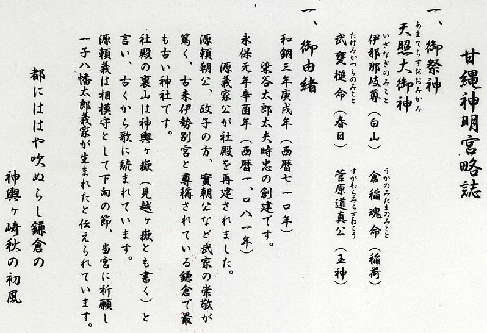 甘縄神明宮略誌
一、御祭神
天照大御神
いざなぎのみこと
伊邪那岐尊（白山）
うかのみたまのみこと
倉稲魂命（稲荷）
武甕槌命（春日）
菅原道真公（五神）
一、御由緒
和銅三年庚戌年（西暦七一〇年）
染谷太郎太夫時忠の創建です。
永保元年辛酉年（西暦一、〇八一年）
源義家公が社殿を再建されました。
源頼朝公、政子の方、實朝公など武家の崇敬が
篤く、古来伊勢別宮と尊称されている鎌倉で最
も古い神社です。
社殿の裏山は神輿ヶ嶽（見越ヶ嶽とも書く）と
言い、古くから歌に読まれています。
源頼義は相模守として下向の節、当宮に祈願し
一子八幡太郎義家が生まれたと伝えられています。
都にははや吹ぬらし鎌倉の
神輿ヶ崎秋の初風